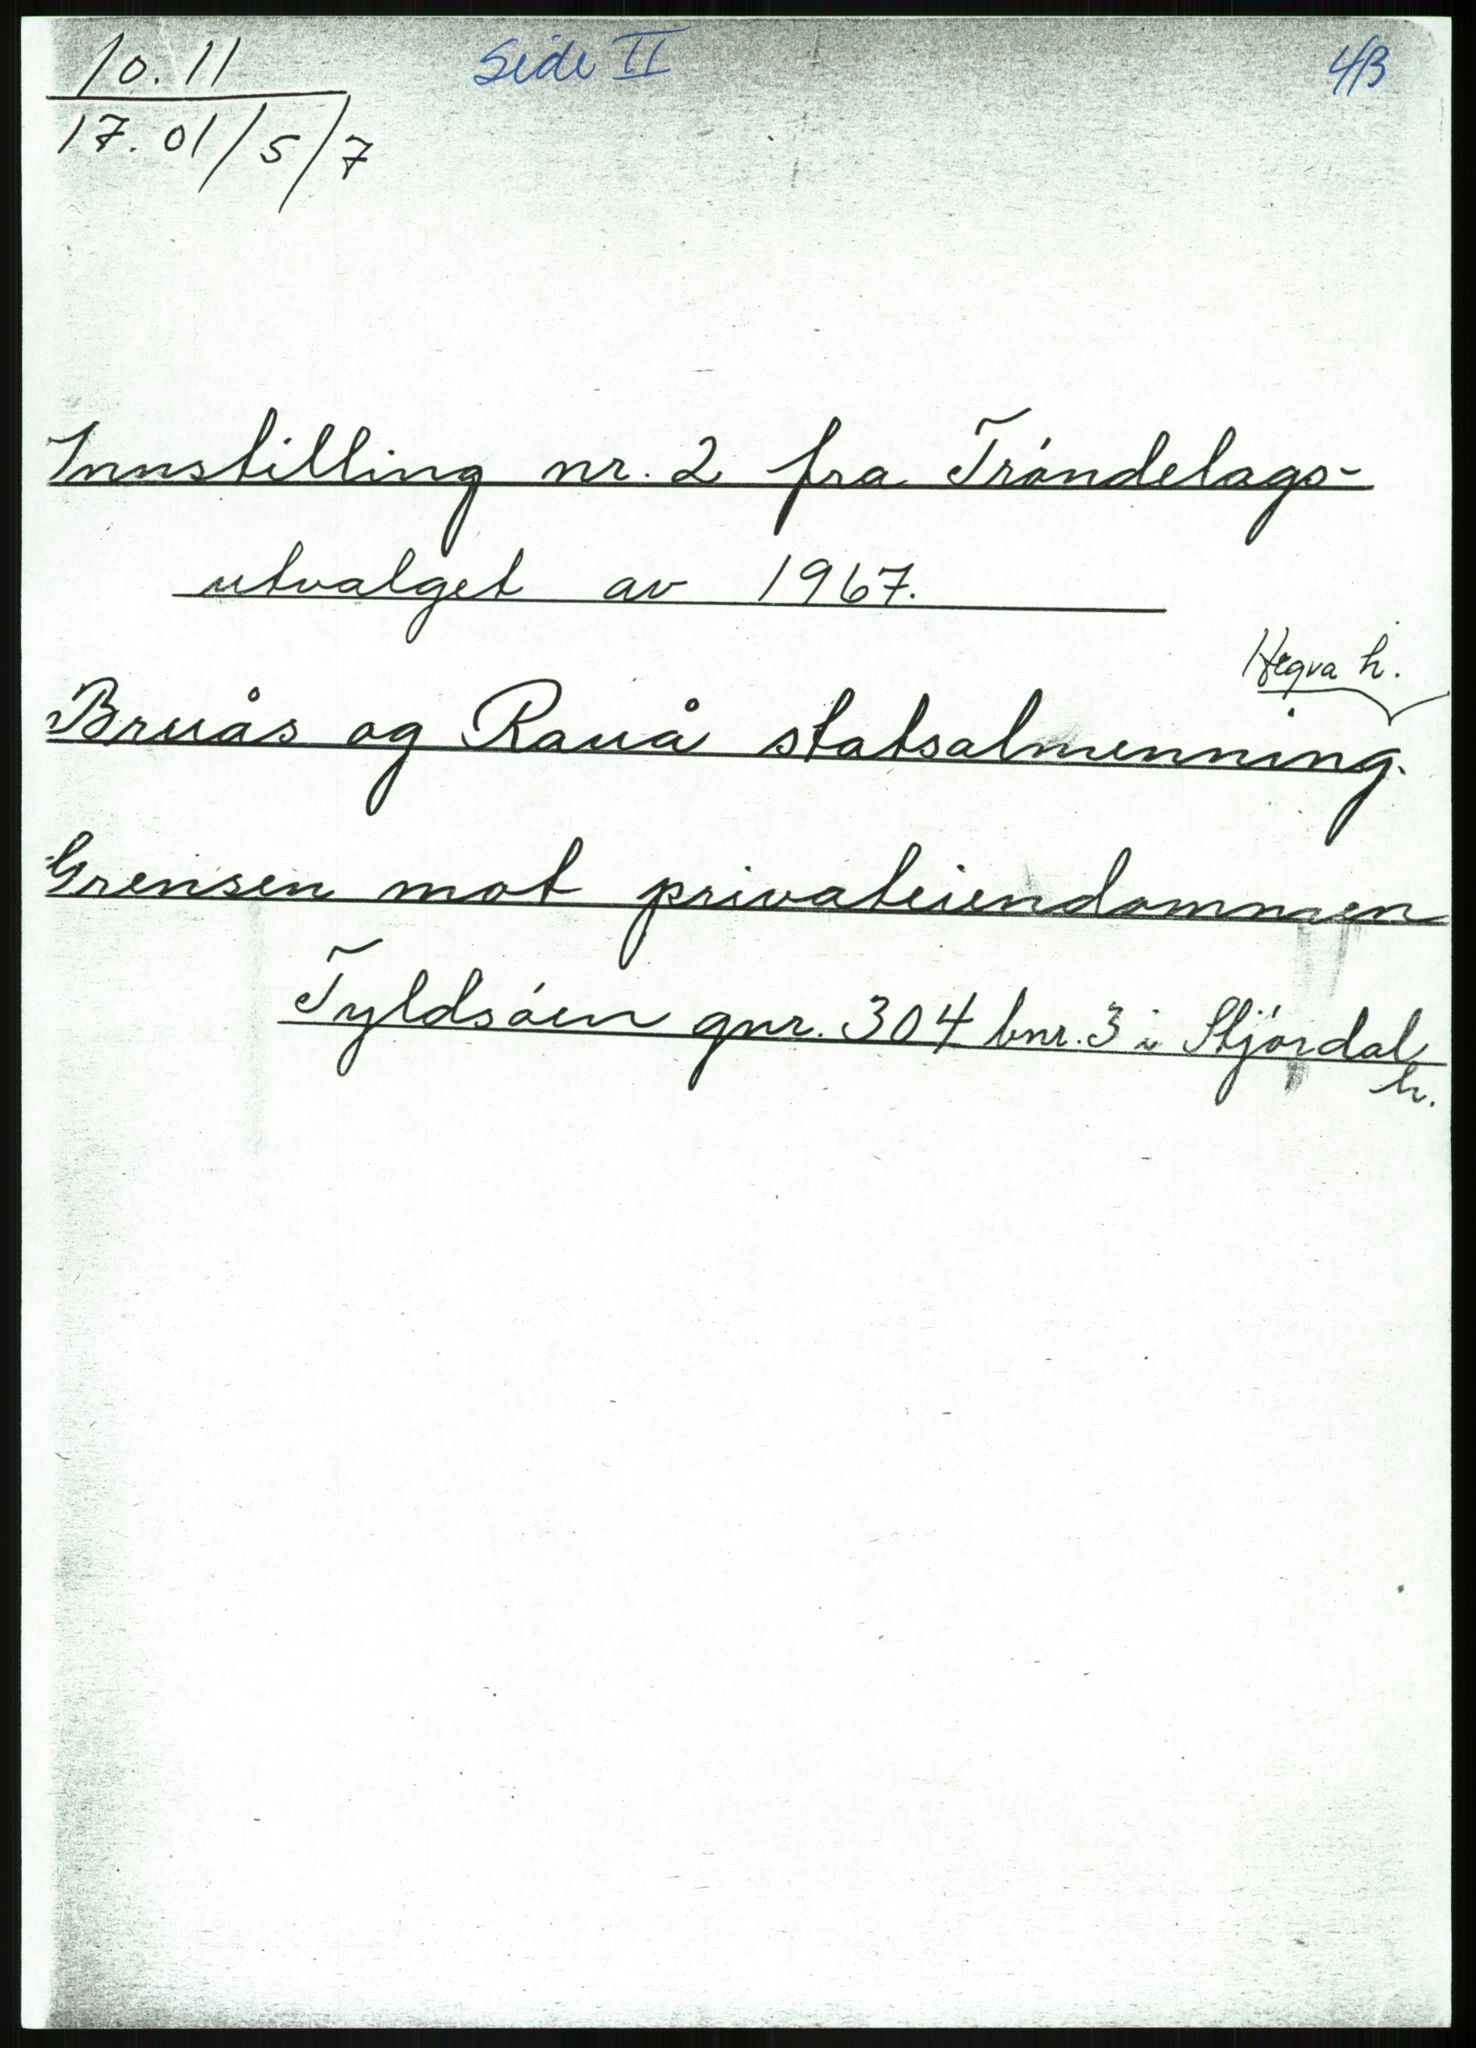 10.11
17.01/5/7
Side II
4B
Innstilling nr. 2 fra Tróndelags-
utvalget av 1967.
Hegra h.
Bruås og Rauå statsalmenning.
Grensen mot privateiendommen
Tyldsóen gnr. 304 bnr. 3 i Stjórdal
h.